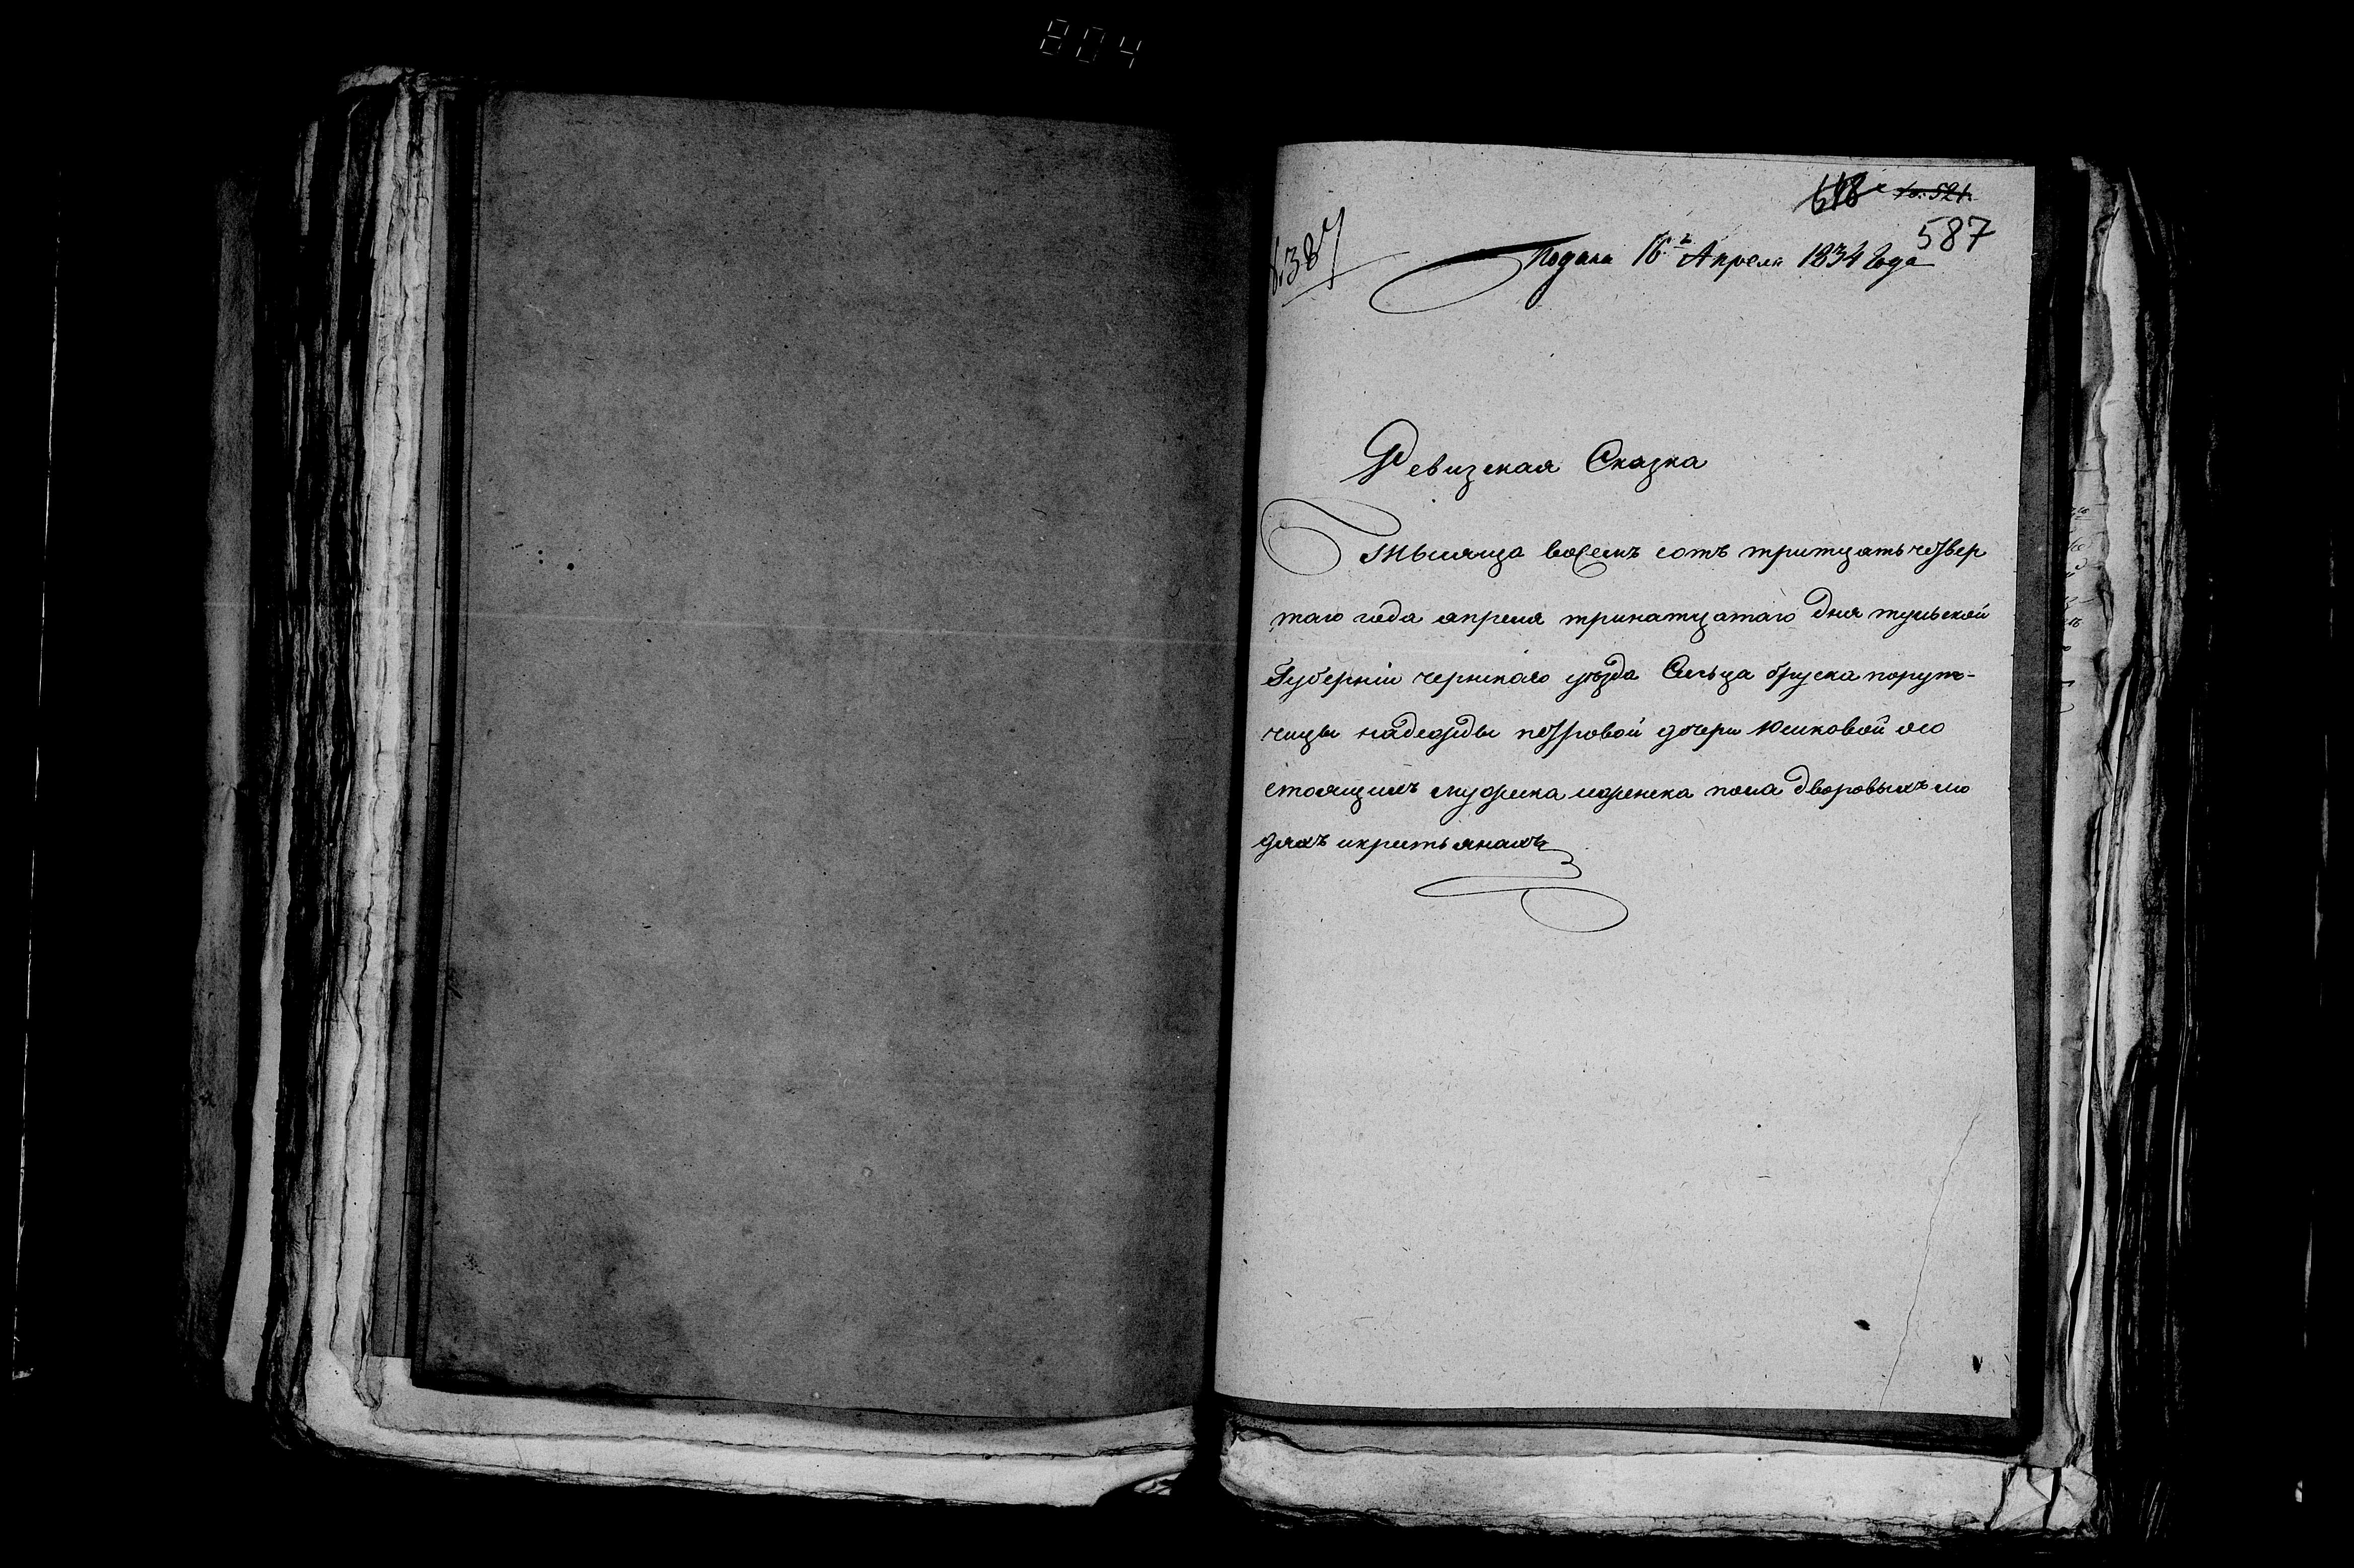 804
618 10.521.
587
387
Подана 16.г Апреля 1834 Года
Ревизская Сказка
Тысяща восемъ сотъ тритцать четвер
таго года апреля тринатцатаго дня тульской
Губерніи чернскаго уѣзда Сельца бруска порут-
чицы надежды петровой дочери Юшковой осо
стоящихъ мужеска иженска пола дворовыхъ лю
дяхъ икрестьянахъ